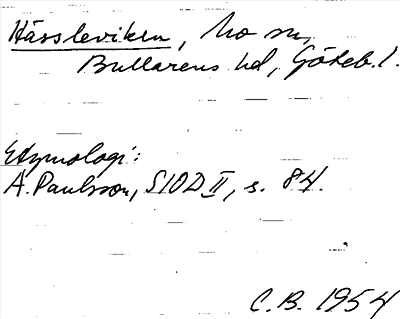 Hässleviken, Mo sn,
Bullarens hd, Göteb. l.
Etymologi:
A. Paulsson, SIOD II, s. 84.
C.B. 1954